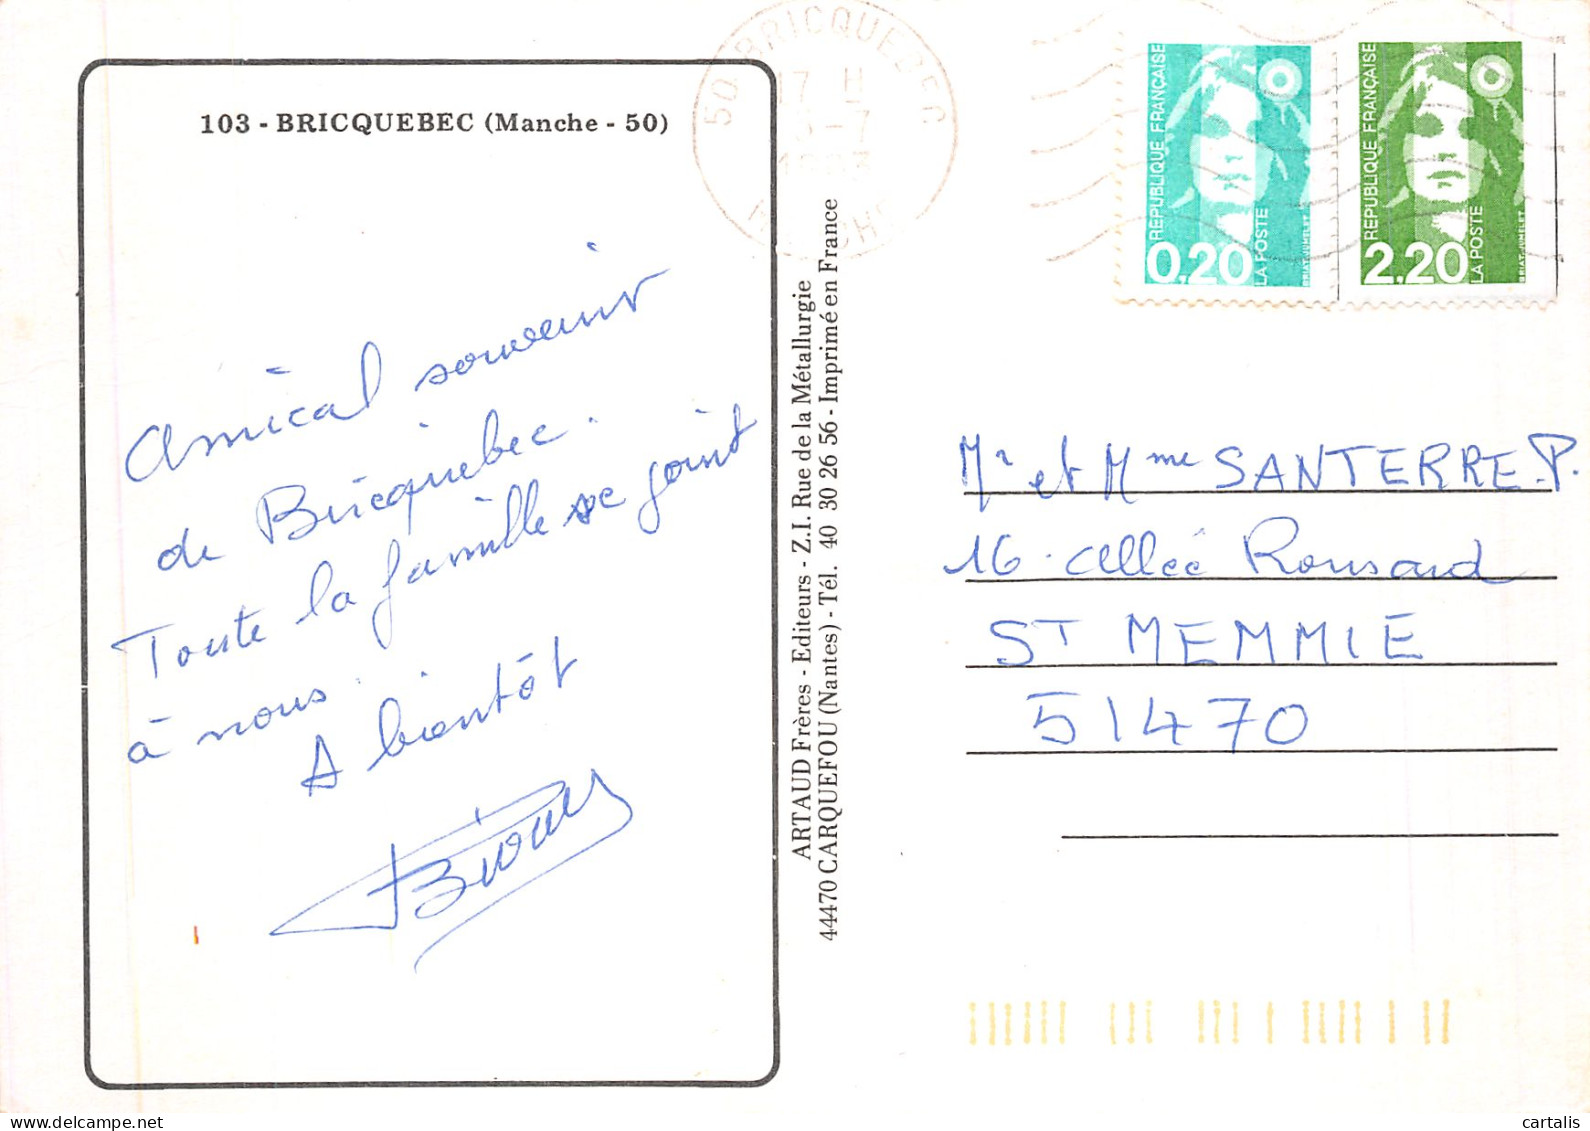 103 - BRICQUEBEC (Manche - 50)
Amical souvenir
de Bricquebec.
Toute la famille se joint
à nous.
A bientôt
ARTAUD Frères - Editeurs - Z.I. Rue de la Métallurgie
44470 CARQUEFOU (Nantes) - Tél. 40 30 26 56 - Imprimé en France
50 BRICQUEBEC
17 H
-7
1993
MANCHE
REPUBLIQUE FRANÇAISE
0,20
LA POSTE
BRIAT-JUMELET
REPUBLIQUE FRANÇAISE
2.20
LA POSTE
BRIAT-JUMELET
Mr et Mme SANTERRE P.
16 Allée Ronsard
ST MEMMIE
51470
cartalis